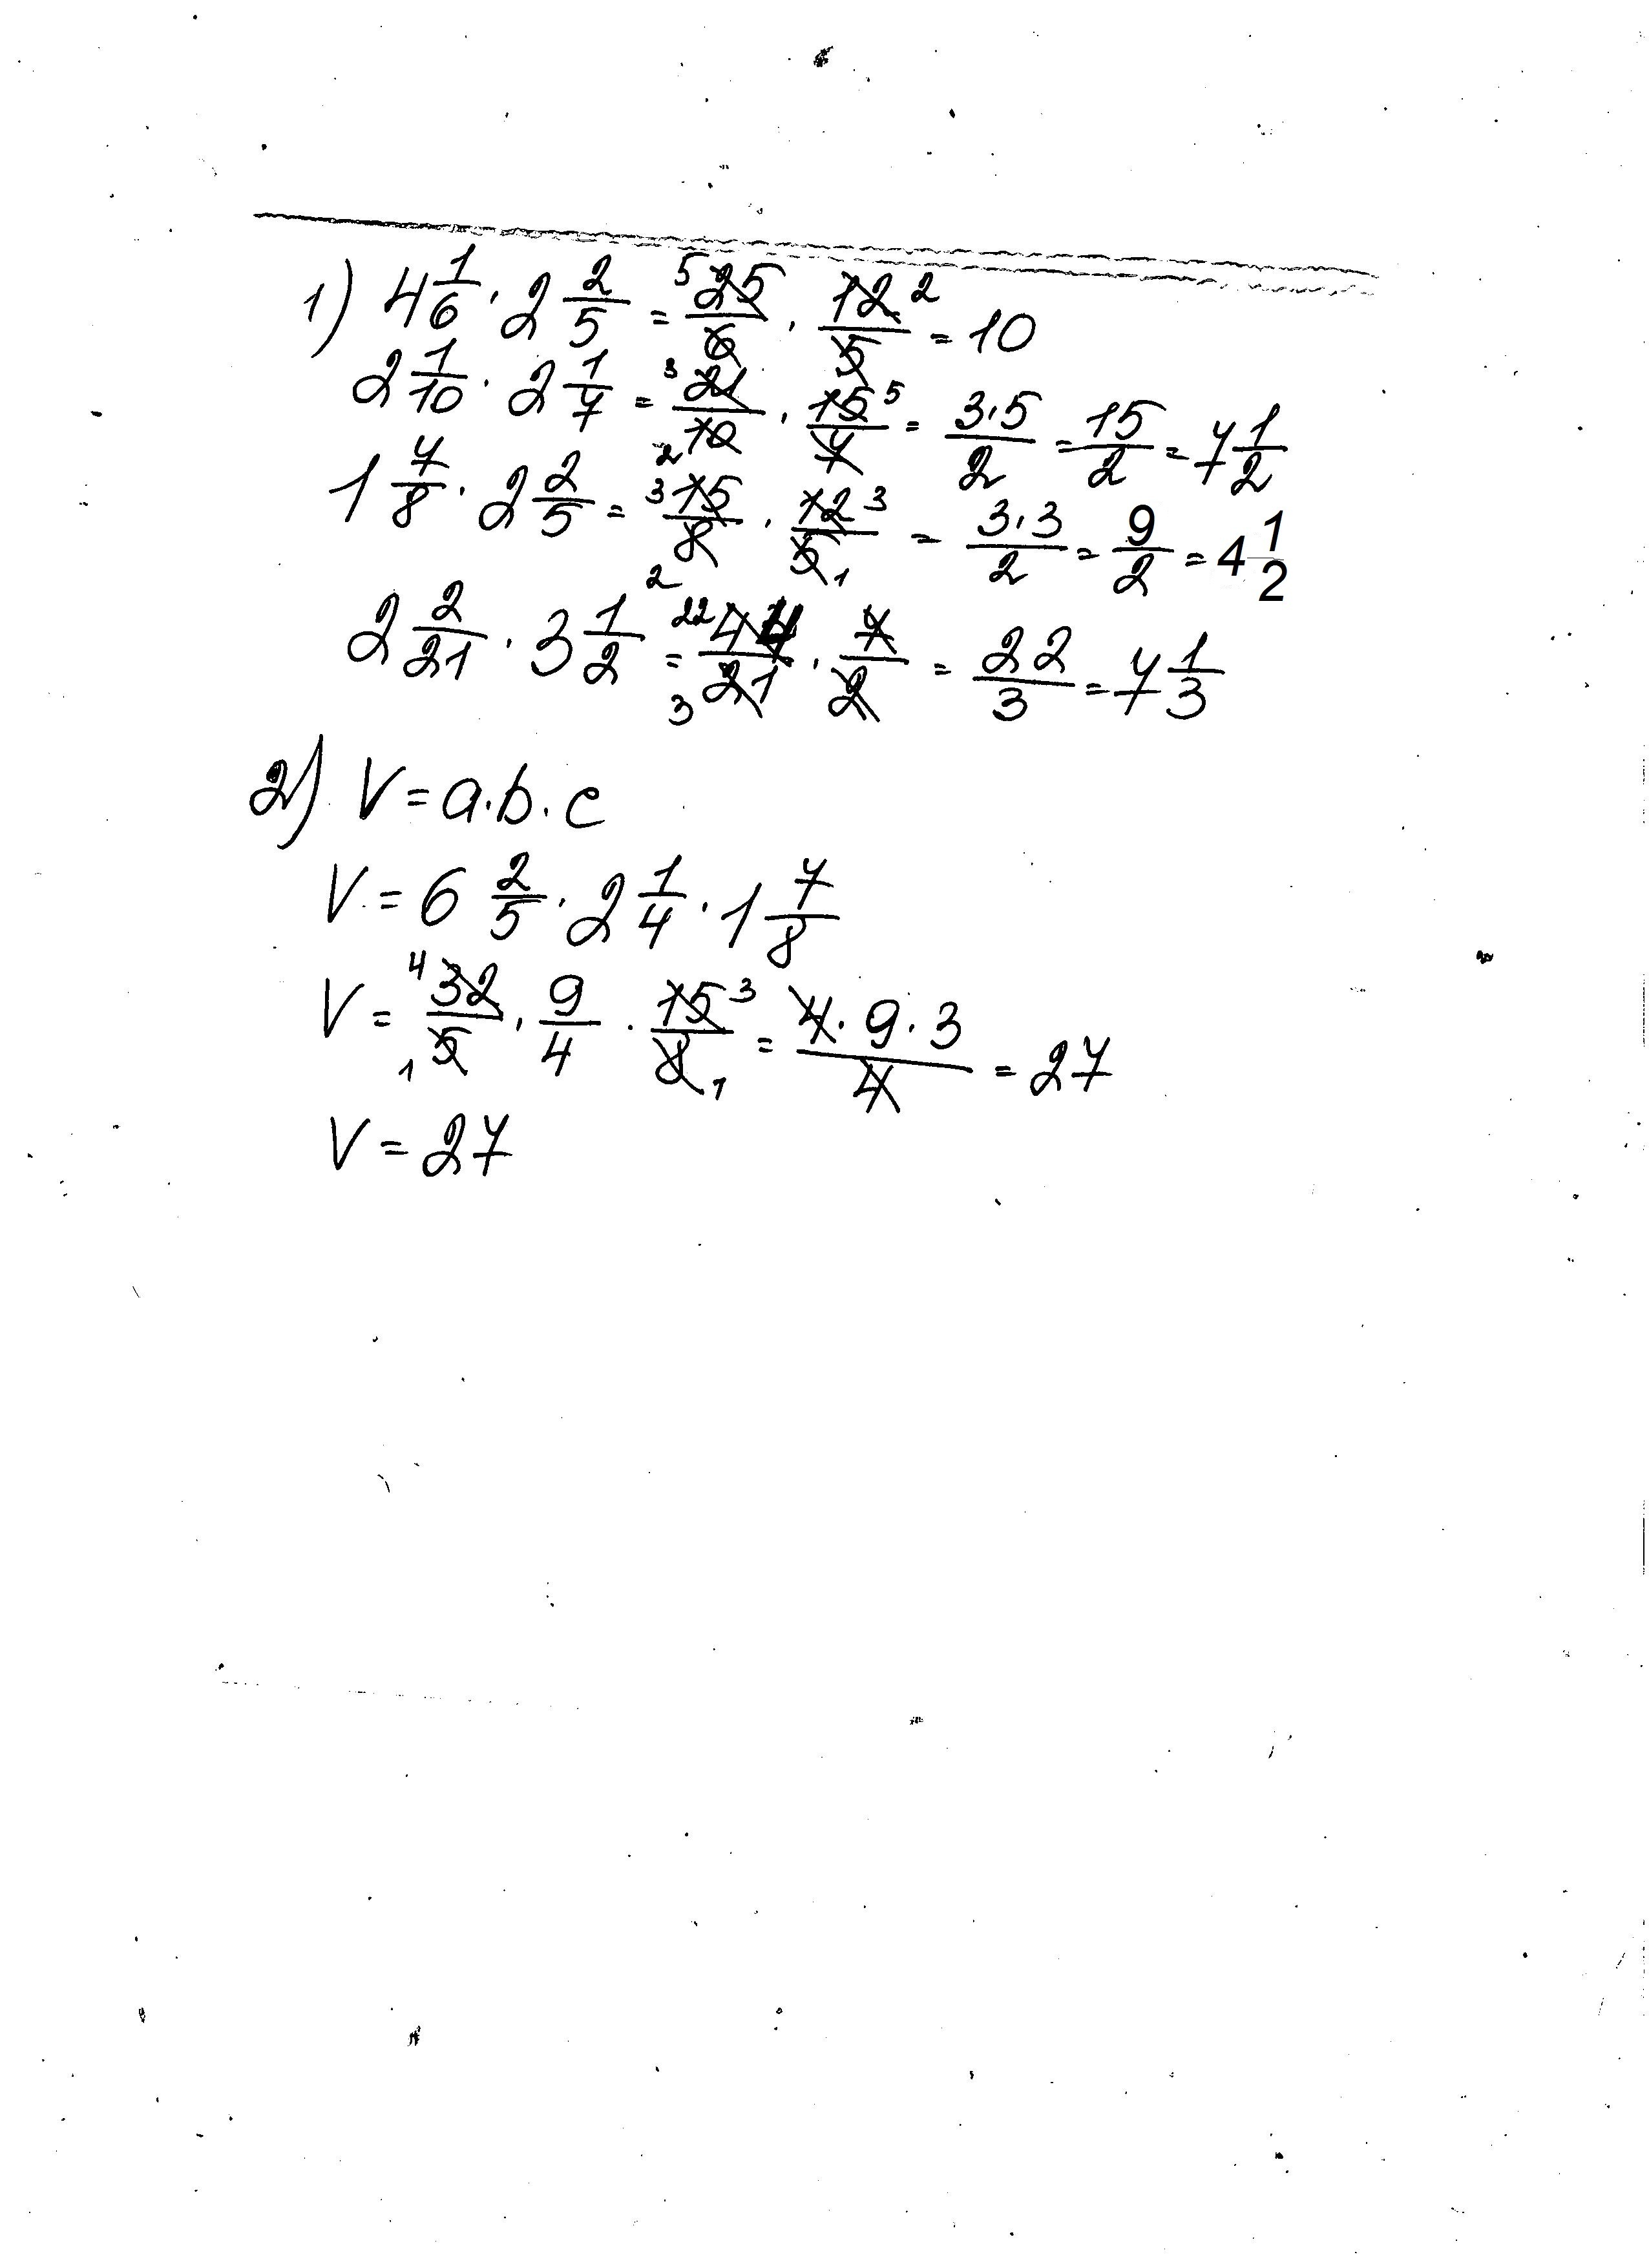 1) 4 1/6 · 2 2/5 = 5 25/6 · 12/5 2 = 10
2 1/10 · 2 1/7 = 3 21/10 2 · 15/7 5 = 3·5/2 = 15/2 = 7 1/2
1 7/8 · 2 2/5 = 3 15/8 2 · 12/5 3 1 = 3·3/2 = 9/2 = 4 1/2
2 2/21 · 3 1/2 = 22 44/21 3 · 7/2 = 22/3 = 7 1/3
2) V = a·b·c
V = 6 2/5 · 2 1/4 · 1 7/8
V = 4 32/5 1 · 9/4 · 15/8 3 1 = 4·9·3/4 = 27
V = 27